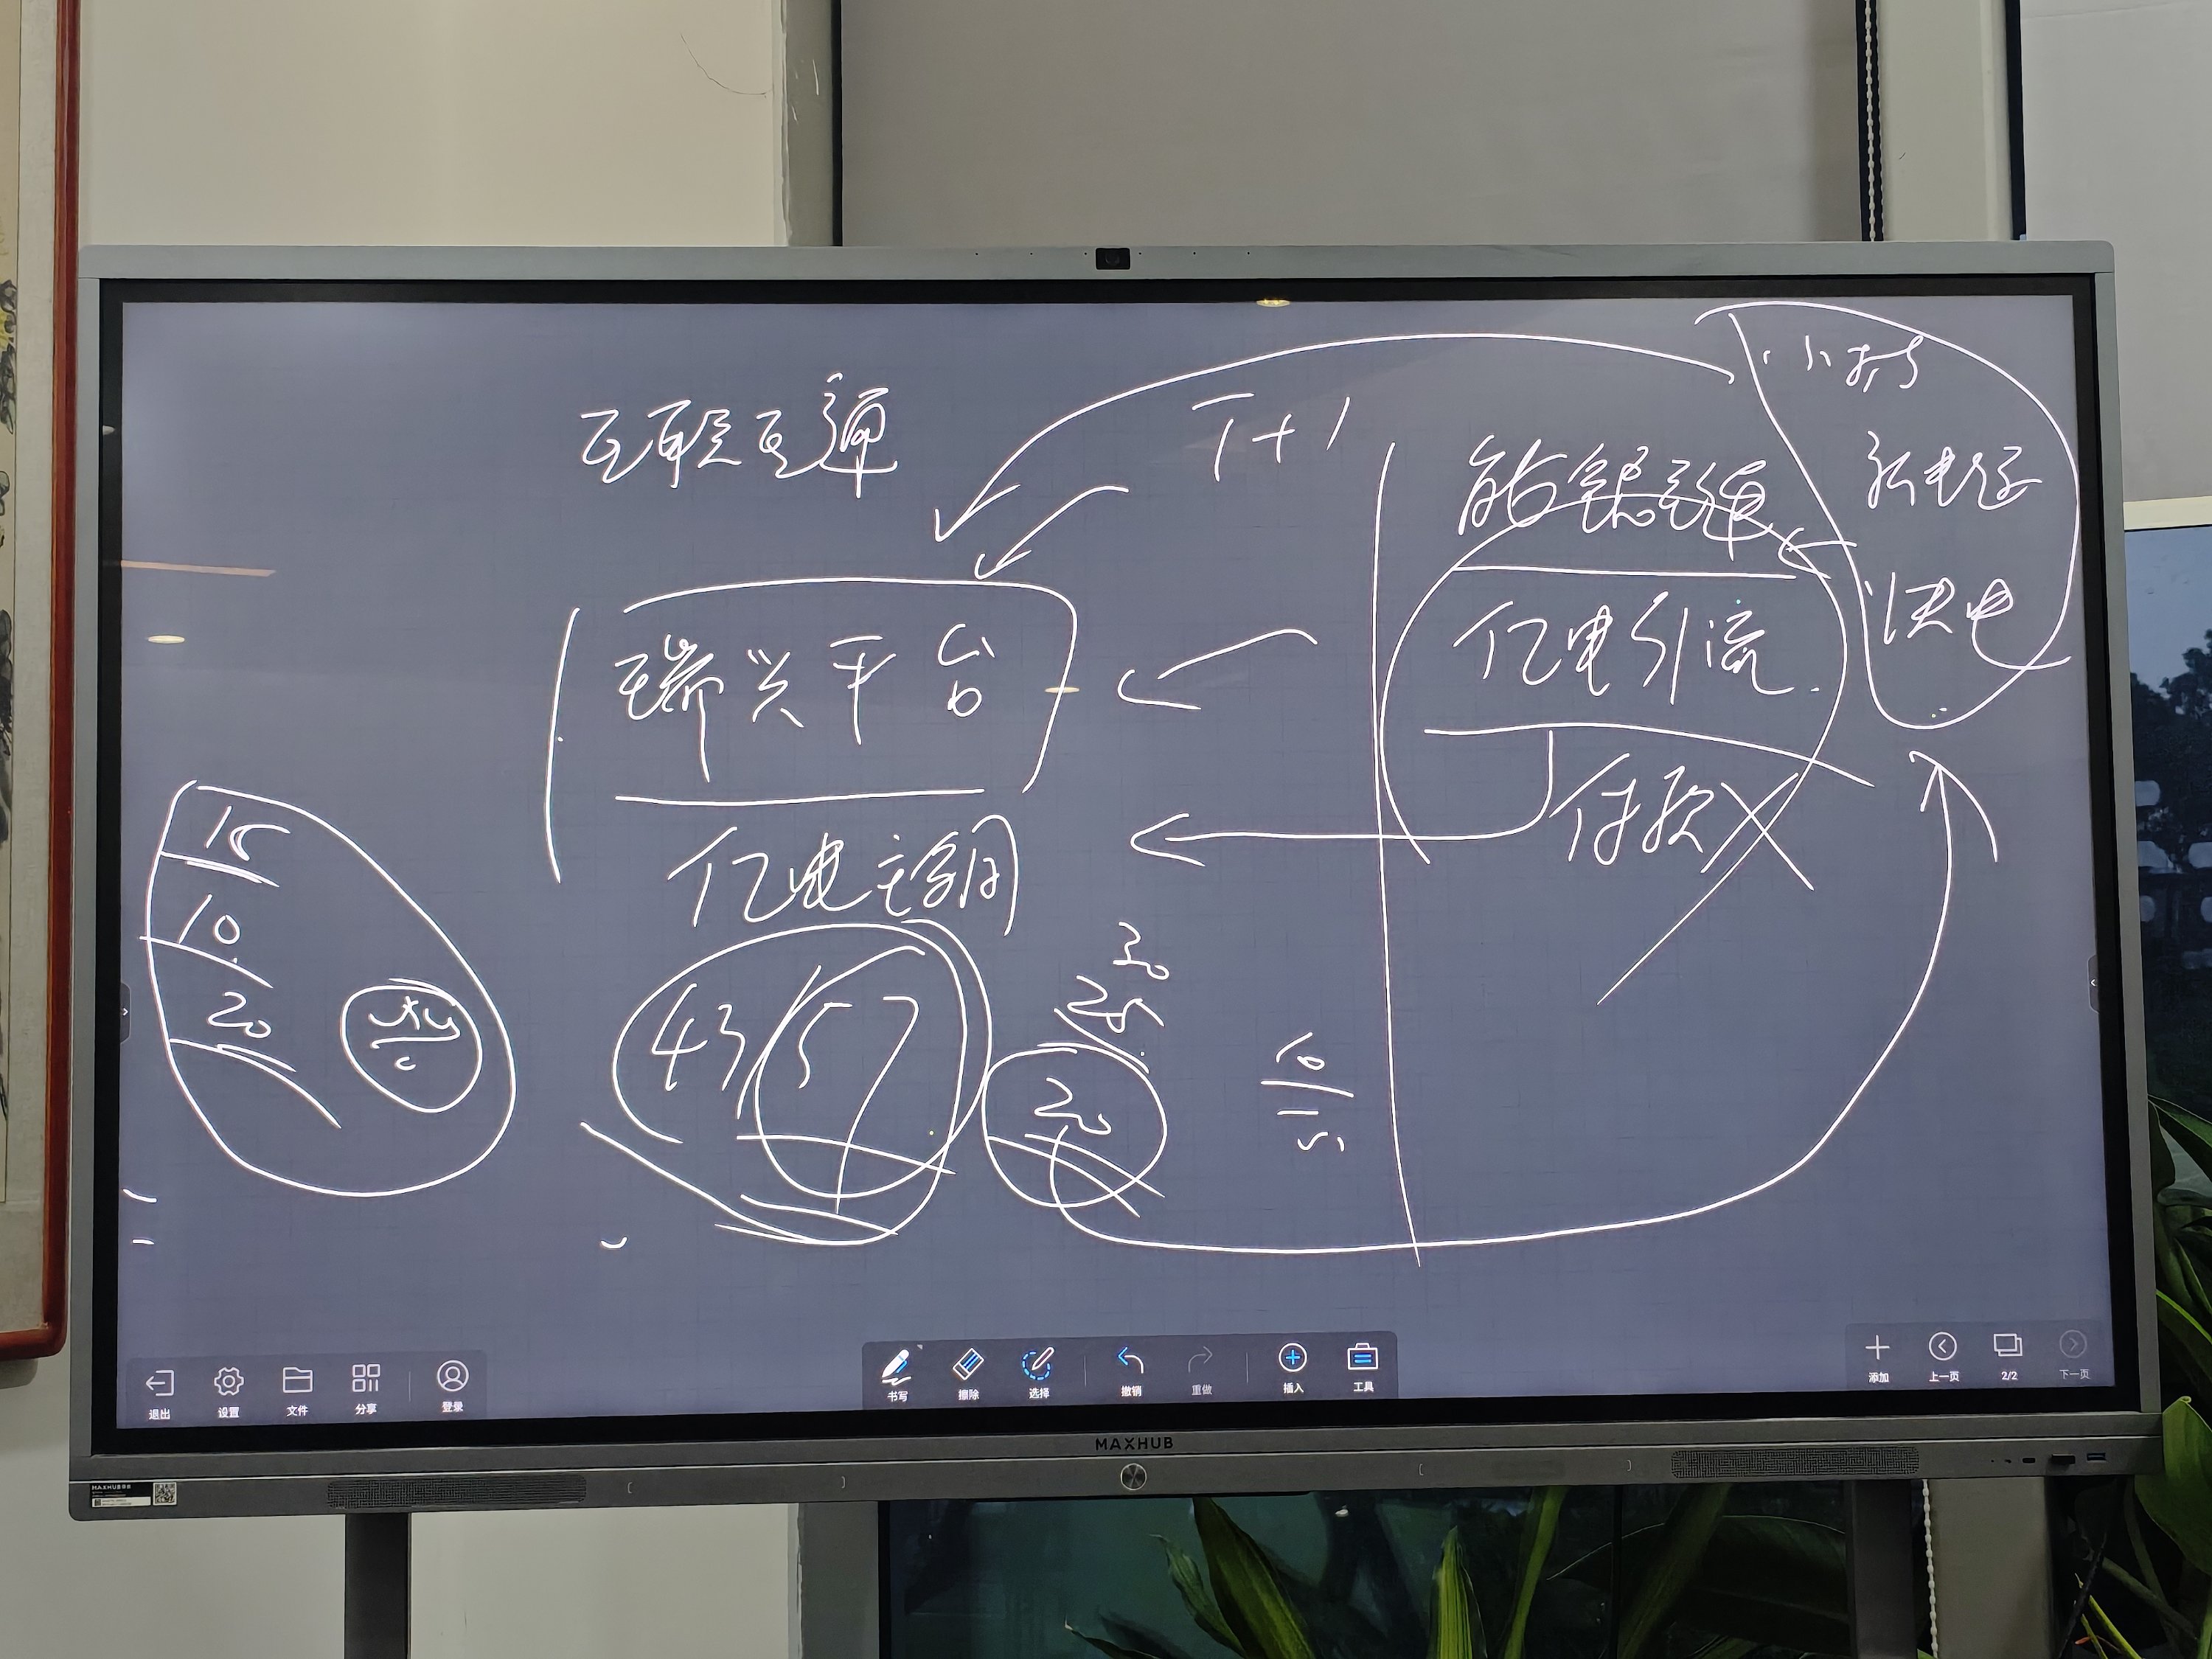 互联互通
T+1
小桔
新电途
快电
能链互通
亿电引流
瑞兴平台
付款 X
亿电主导
15
10
20
43
57
30
25
20
10
退出
设置
文件
分享
登录
书写
擦除
选择
撤销
重做
插入
工具
添加
上一页
2/2
下一页
MAXHUB